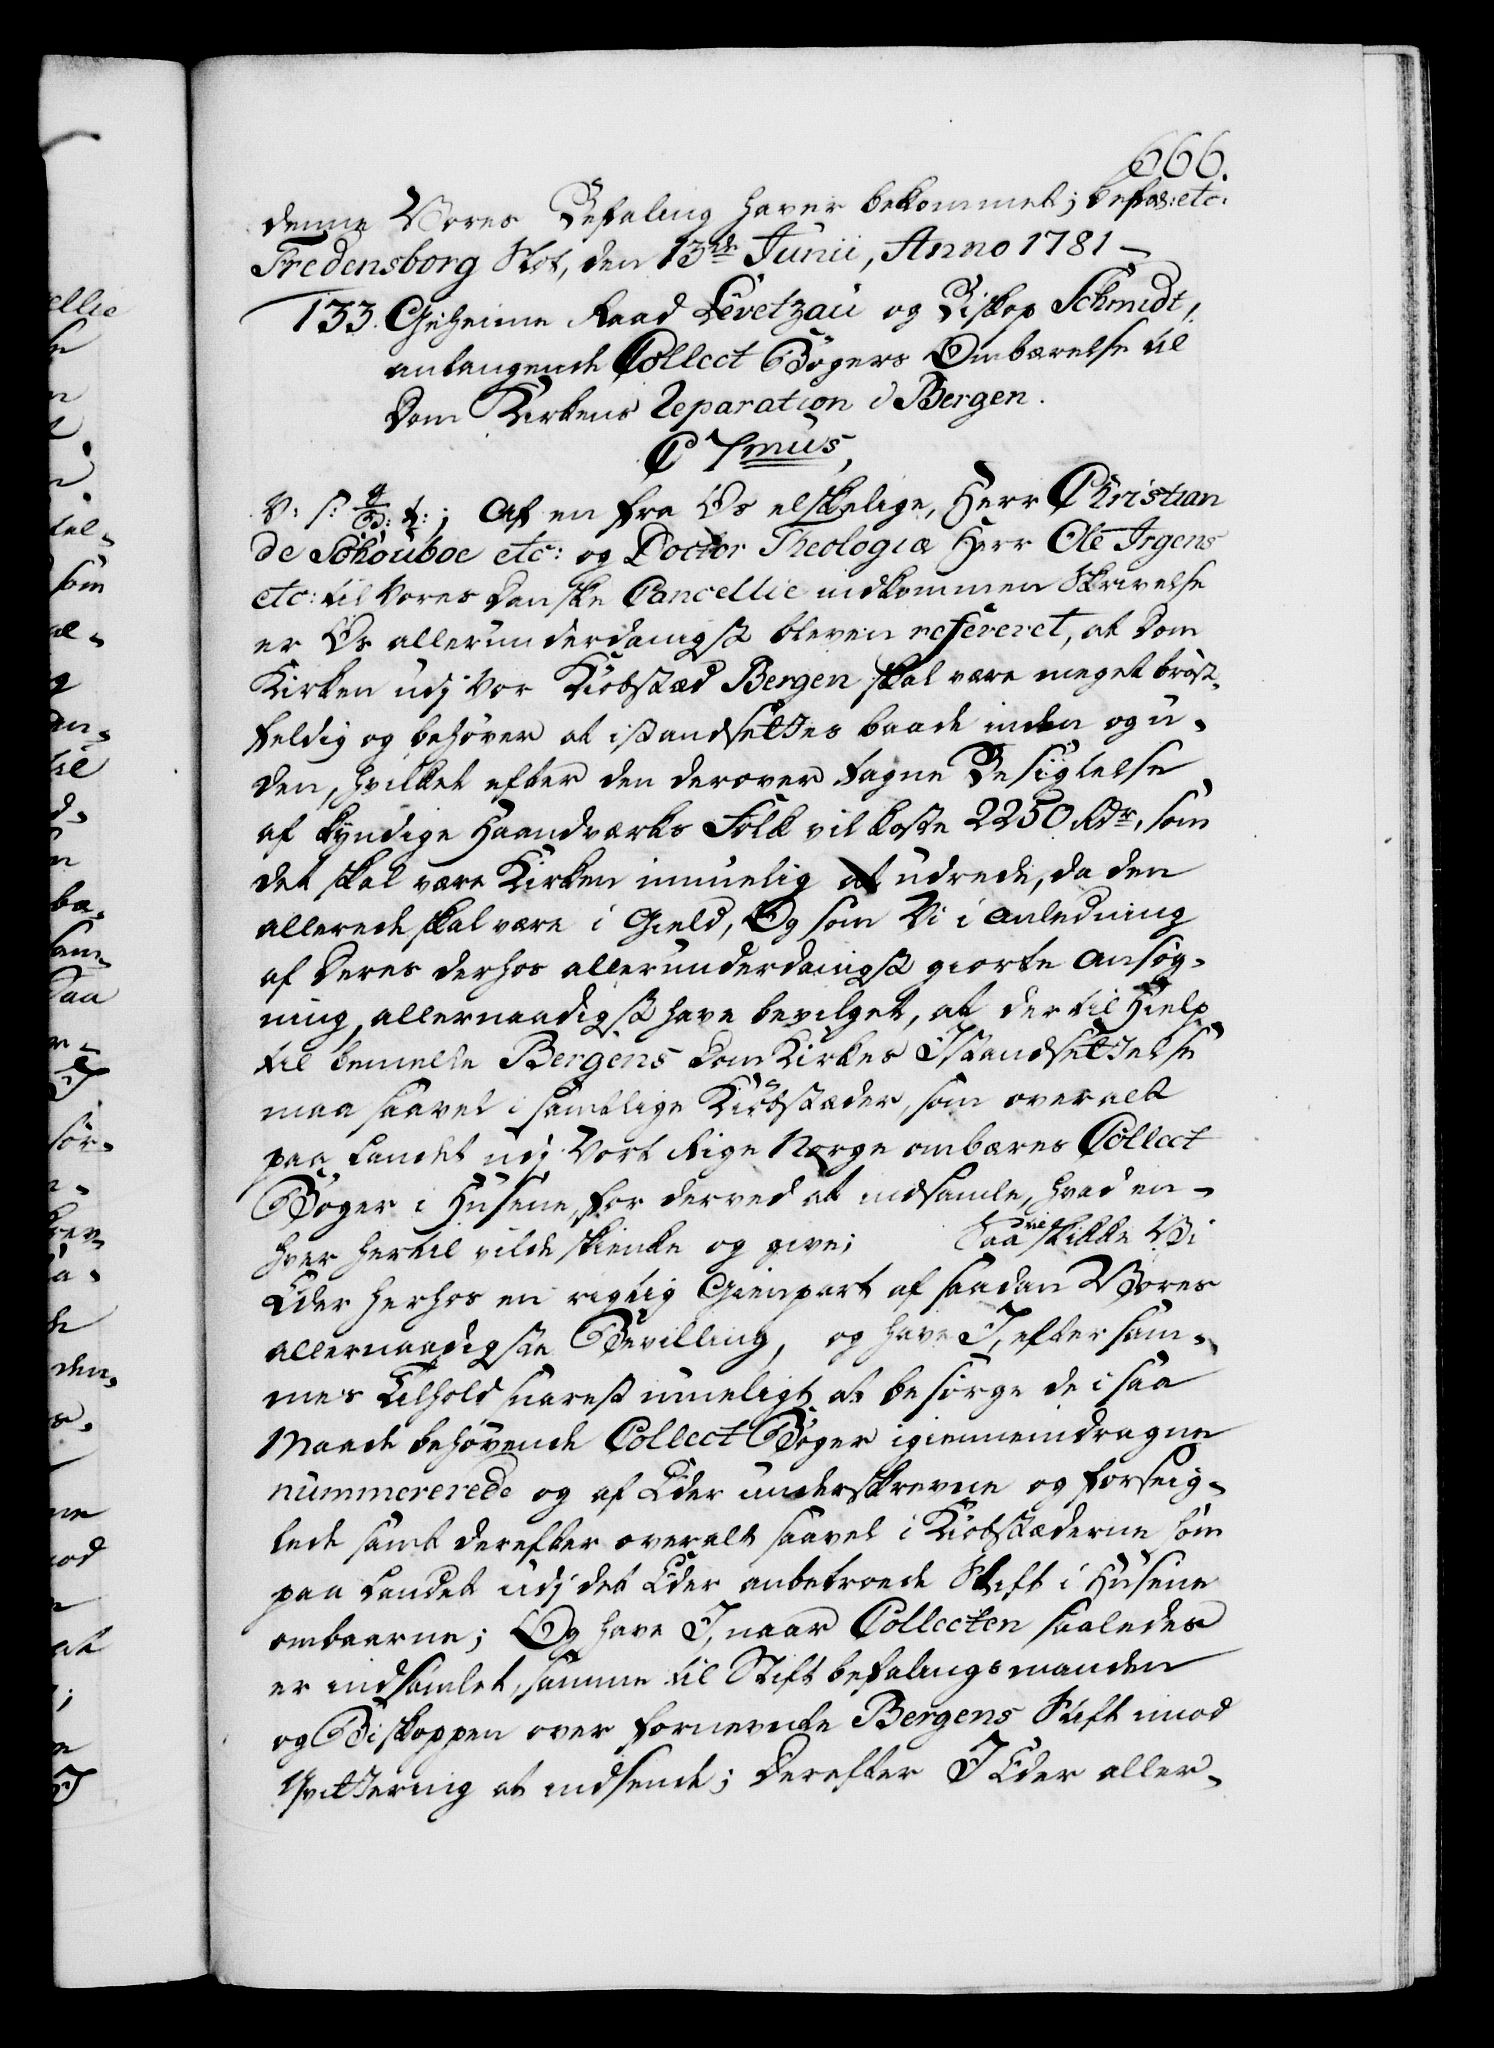 666.
denne Vores Befaling haver bekommet; Befal: etc:
Fredensborg Slot, den 13de Junii, Anno 1781 –
133. Geheime Raad Levetzau og Biskop Schmidt,
anlangende Collect Bøgers Ombærelse til
Dom Kirkens Reparation i Bergen.
C 7mus,
V: S: G: t:; Af en fra Os elskelige, Herr Christian
de Schouboe etc: og Doctor Theologiæ Herr Ole Irgens
etc: til Vores Danske Cancellie indkommen Skrivelse
er Os allerunderdanigst bleven refereret, at Dom
Kirken udj Vor Kiöbstæd Bergen skal være meget bröst-
feldig og behöver at istandsettes baade inden og u-
den, hvilket efter den derover tagne Besigtelse
af kyndige Haandværks Folk vil koste 2250 Rdr, som
det skal være Kirken umuelig at udrede, da den
allerede skal være i Gield, Og som Vi i Anledning
af Deres derhos allerunderdanigst giorte Ansög-
ning, allernaadigst have bevilget, at der til Hielp
til bemelte Bergens Dom Kirkes Istandsettelse
maa saavel i samtlige Kiöbstæder, som overalt
paa Landet udj Vort Rige Norge ombæres Collect
Böger i Husene, for derved at indsamle, hvad en-
hver hertil vilde skienke og give; Saa skikke Vi
Eder herhos en rigtig Gienpart af saadan Vores
allernaadigste Bevilling, og have I, efter sam-
mes Tilhold snarest mueligt at besörge de i saa
Maade behövende Collect Böger igiennemdragne
nummererede og af Eder underskrevne og forseig-
lede samt derefter overalt saavel i Kiöbstæderne som
paa Landet udj det Eder anbetroede Stift i Husene
ombaarne; Og have I, naar Collecten saaledes
er indsamlet, samme til Stiftbefalingsmanden
og Biskoppen over fornevnte Bergens Stift imod
Qvittering at indsende; Derefter I Eder aller-